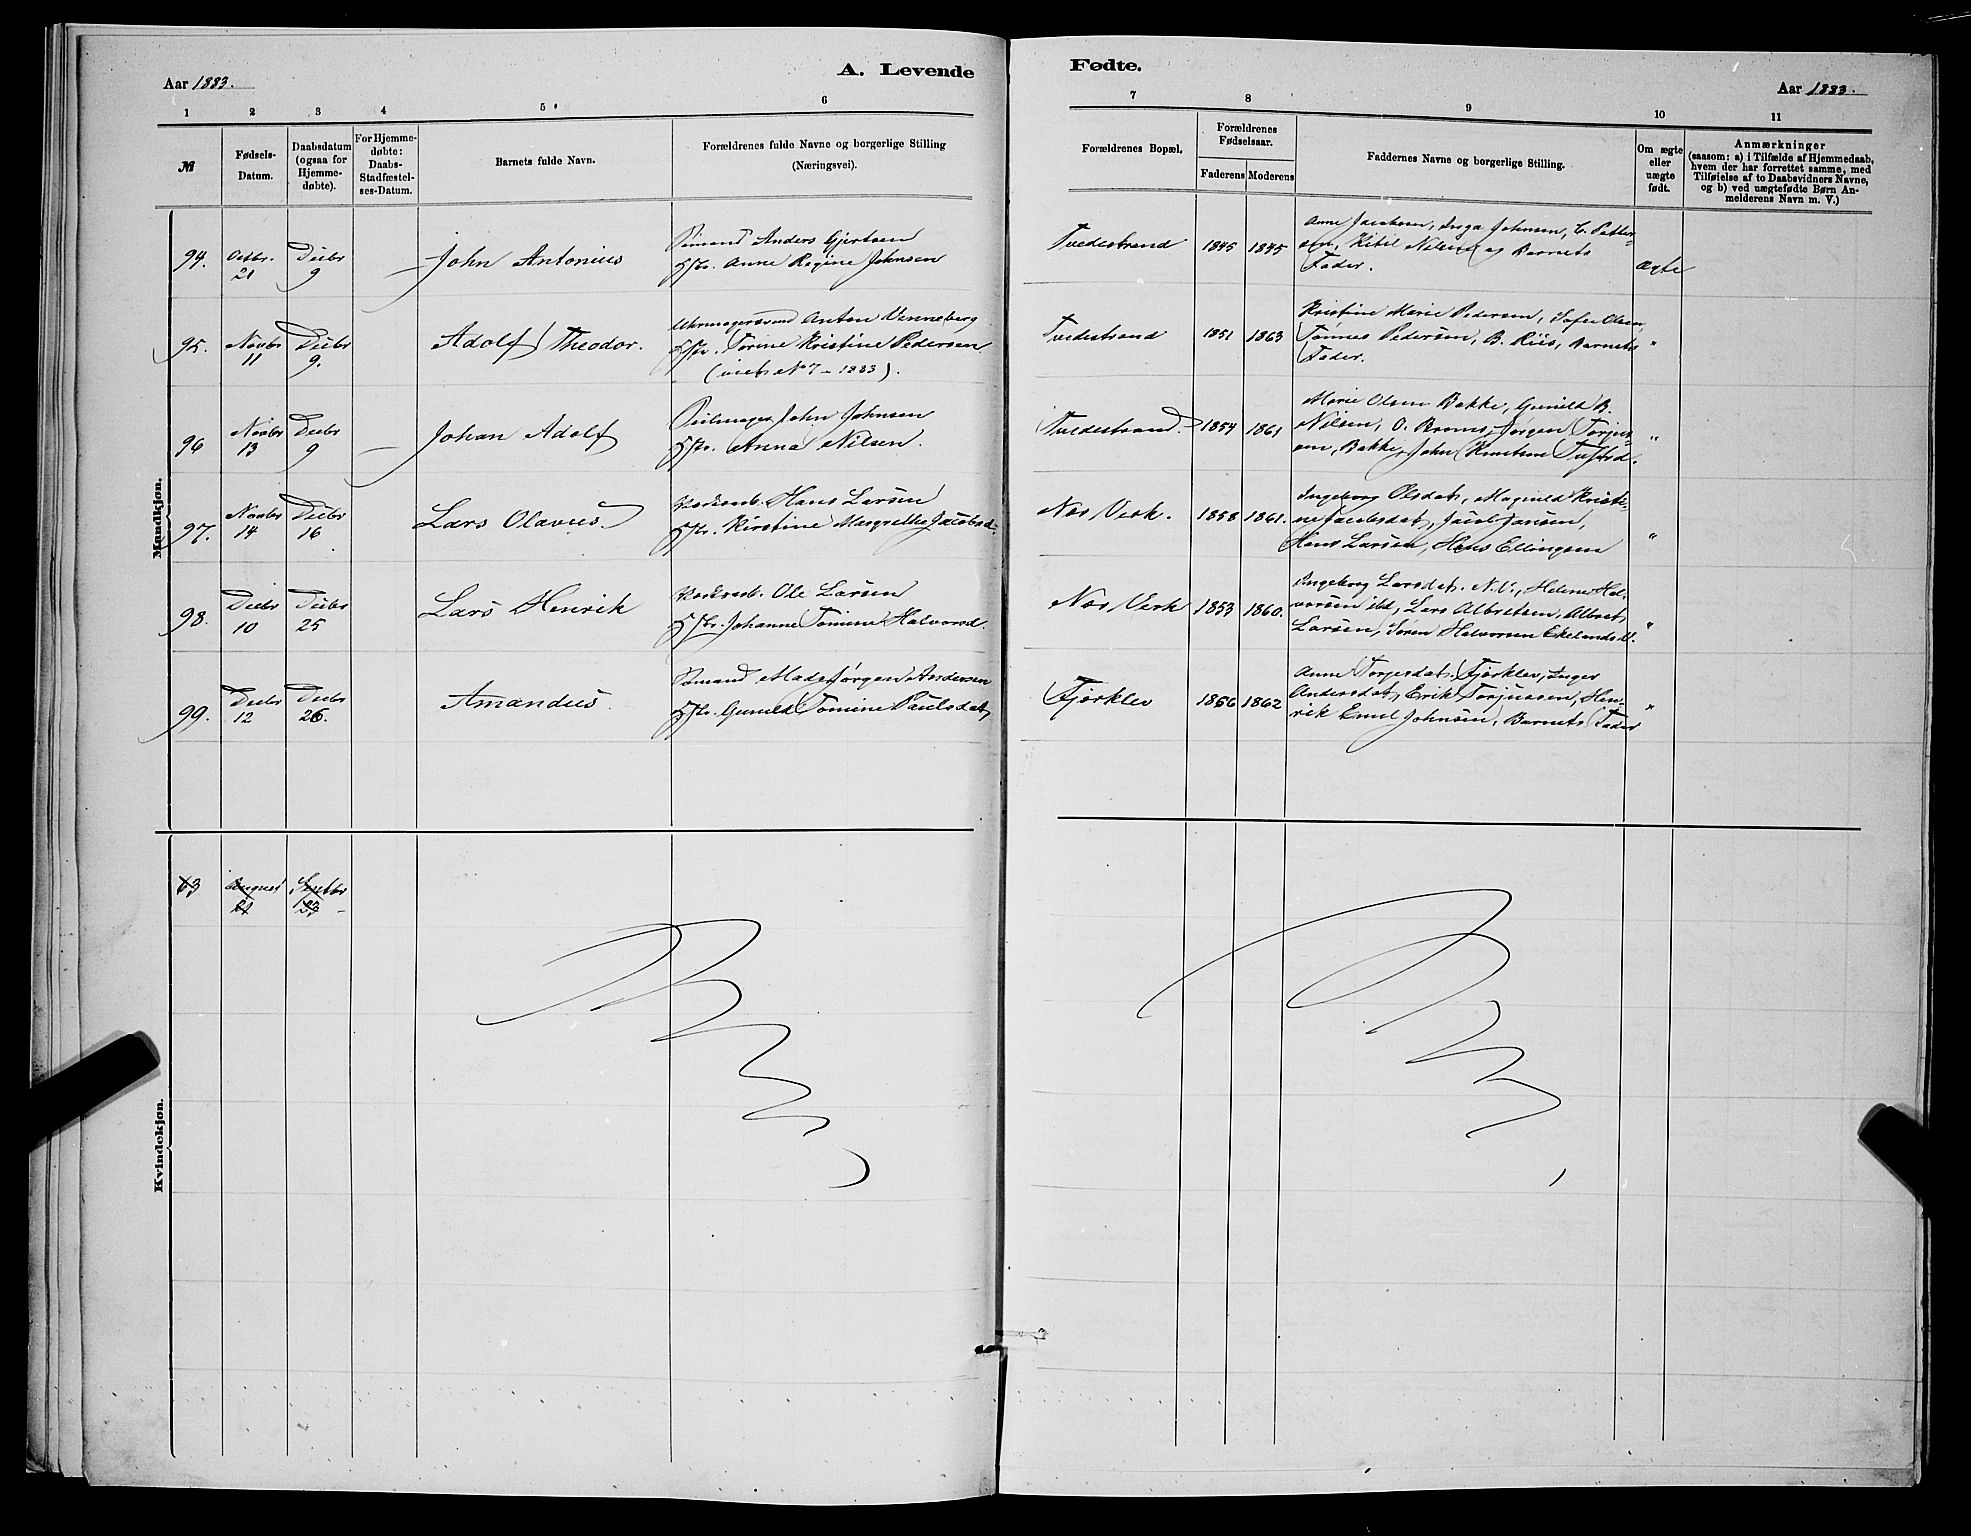 Aar 1883.
A. Levende
Fødte.
Aar 1883.
1 2 3 4 5 6
7 8 9 10 11
№
Fødsels-
Datum.
Daabsdatum
(ogsaa for
Hjemme-
døbte).
For Hjemme-
døbte:
Daabs-
Stadfæstel-
ses-Datum.
Barnets fulde Navn.
Forældrenes fulde Navne og borgerlige Stilling
(Næringsvei).
Forældrenes Bopæl.
Forældrenes
Fødselsaar.
Faderens Moderens
Faddernes Navne og borgerlige Stilling.
Om ægte
eller
uægte
født.
Anmærkninger
(saasom: a) i Tilfælde af Hjemmedaab,
hvem der har forrettet samme, med
Tilføielse af to Daabsvidners Navne,
og b) ved uægtefødte Børn An-
melderens Navn m. V.)
Mandkjøn.
94. Octbr. 21 Decbr 9 John Antonius
Sømand Anders Gjertsen
Hstr. Anne Regine Johnsen
Tvedestrand 1845 1845
Anne Jacobsen, Inga Johnsen, C. Petter-
sen, Kitil Nilsen og Barnets
Fader.
ægte
95. Novbr 11 Decbr 9. Adolf Theodor.
Uhrmagersvend Anton Venneberg
Hstr. Torine Kristine Pedersen
(viet № 7 - 1883).
Tvedestrand 1851 1863
Kristine Marie Pedersen, Sofie Olsen,
Tønnes Pedersen, B. Riis, Barnets
Fader.
"
96 Novbr 13 Decbr 9 Johan Adolf
Seilmager John Johnsen
Hstr. Anna Nilsen.
Tvedestrand. 1854 1861
Marie Olsen Bakke, Gunild B.
Nilsen, O. Broms, Jørgen Torjus-
sen, Bakke, John Knutsen
"
97. Novbr 14 Decbr 16 Lars Olavus.
Hans Larsen
Hstr. Kirstine Margrethe Jacobsd.
Nes Verk. 1858 1861.
Ingeborg Olsdat, Magnild Kristi-
ne Jacobsdat, Jacob Jansen,
Hans Larsen, Hans Ellingsen
"
98. Decbr 10 Decbr 25 Lars Henrik
Ole Larsen
Hstr. Johanne Tomine Halvorsd.
Nes Verk 1853 1860.
Ingeborg Larsdat. N.V., Helene Hal-
vorsen ibd, Lars Albretsen, Albret
Larsen, Søren Halvorsen Ekelands V.
"
99. Decbr 12 Decbr 26. Amandus
Sømand Mads Jørgen Andersen
Hstr. Gunild Tomine Paulsdat,
Fjerklev 1856 1862
Anne Torjesdat. Fjerklev, Inger
Andersdat, Erik Torjussen, Hen-
rik Emil Johnsen, Barnets Fader
"
Kvindekjøn.
63 August Septbr 23